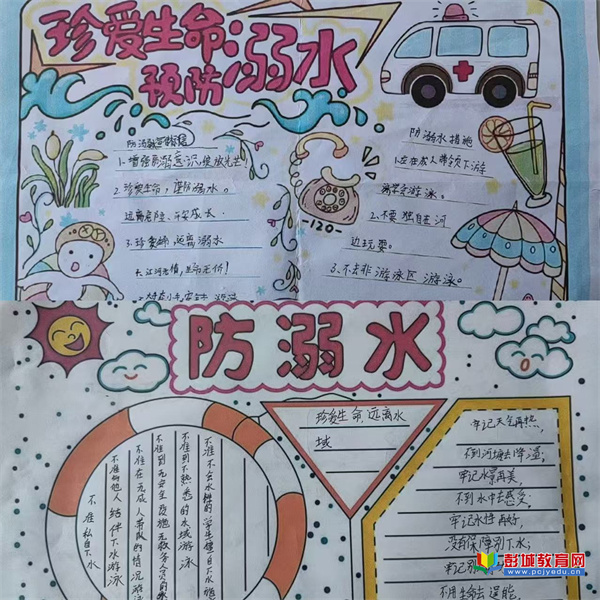 珍爱生命
预防溺水
防溺水措施
2.珍爱生命,谨防溺水。
远离危险、平安成长.
3.珍爱生命 远离溺水
4.江河无情,生命无价!
1.应在成人带领下游
游泳。
2.不要独自在河
边玩耍。
3.不去非游泳区游泳。
-120-
防溺水
不准私自下水
不准与他人结伴下水游泳
不准在无成人带队的情况游泳
不准到无安全设施无救务人员的
不准到不熟悉的水域游泳
不准不会水性的学生擅自下水施
珍爱生命,远离水
域
牢记天气再热,
不到河塘去降温;
牢记水景再美,
不到水中去感受;
牢记水性再好,
没有保障别下水;
牢记别
不用生命去逞能
彭城教育网
www.pcjyedu.cn